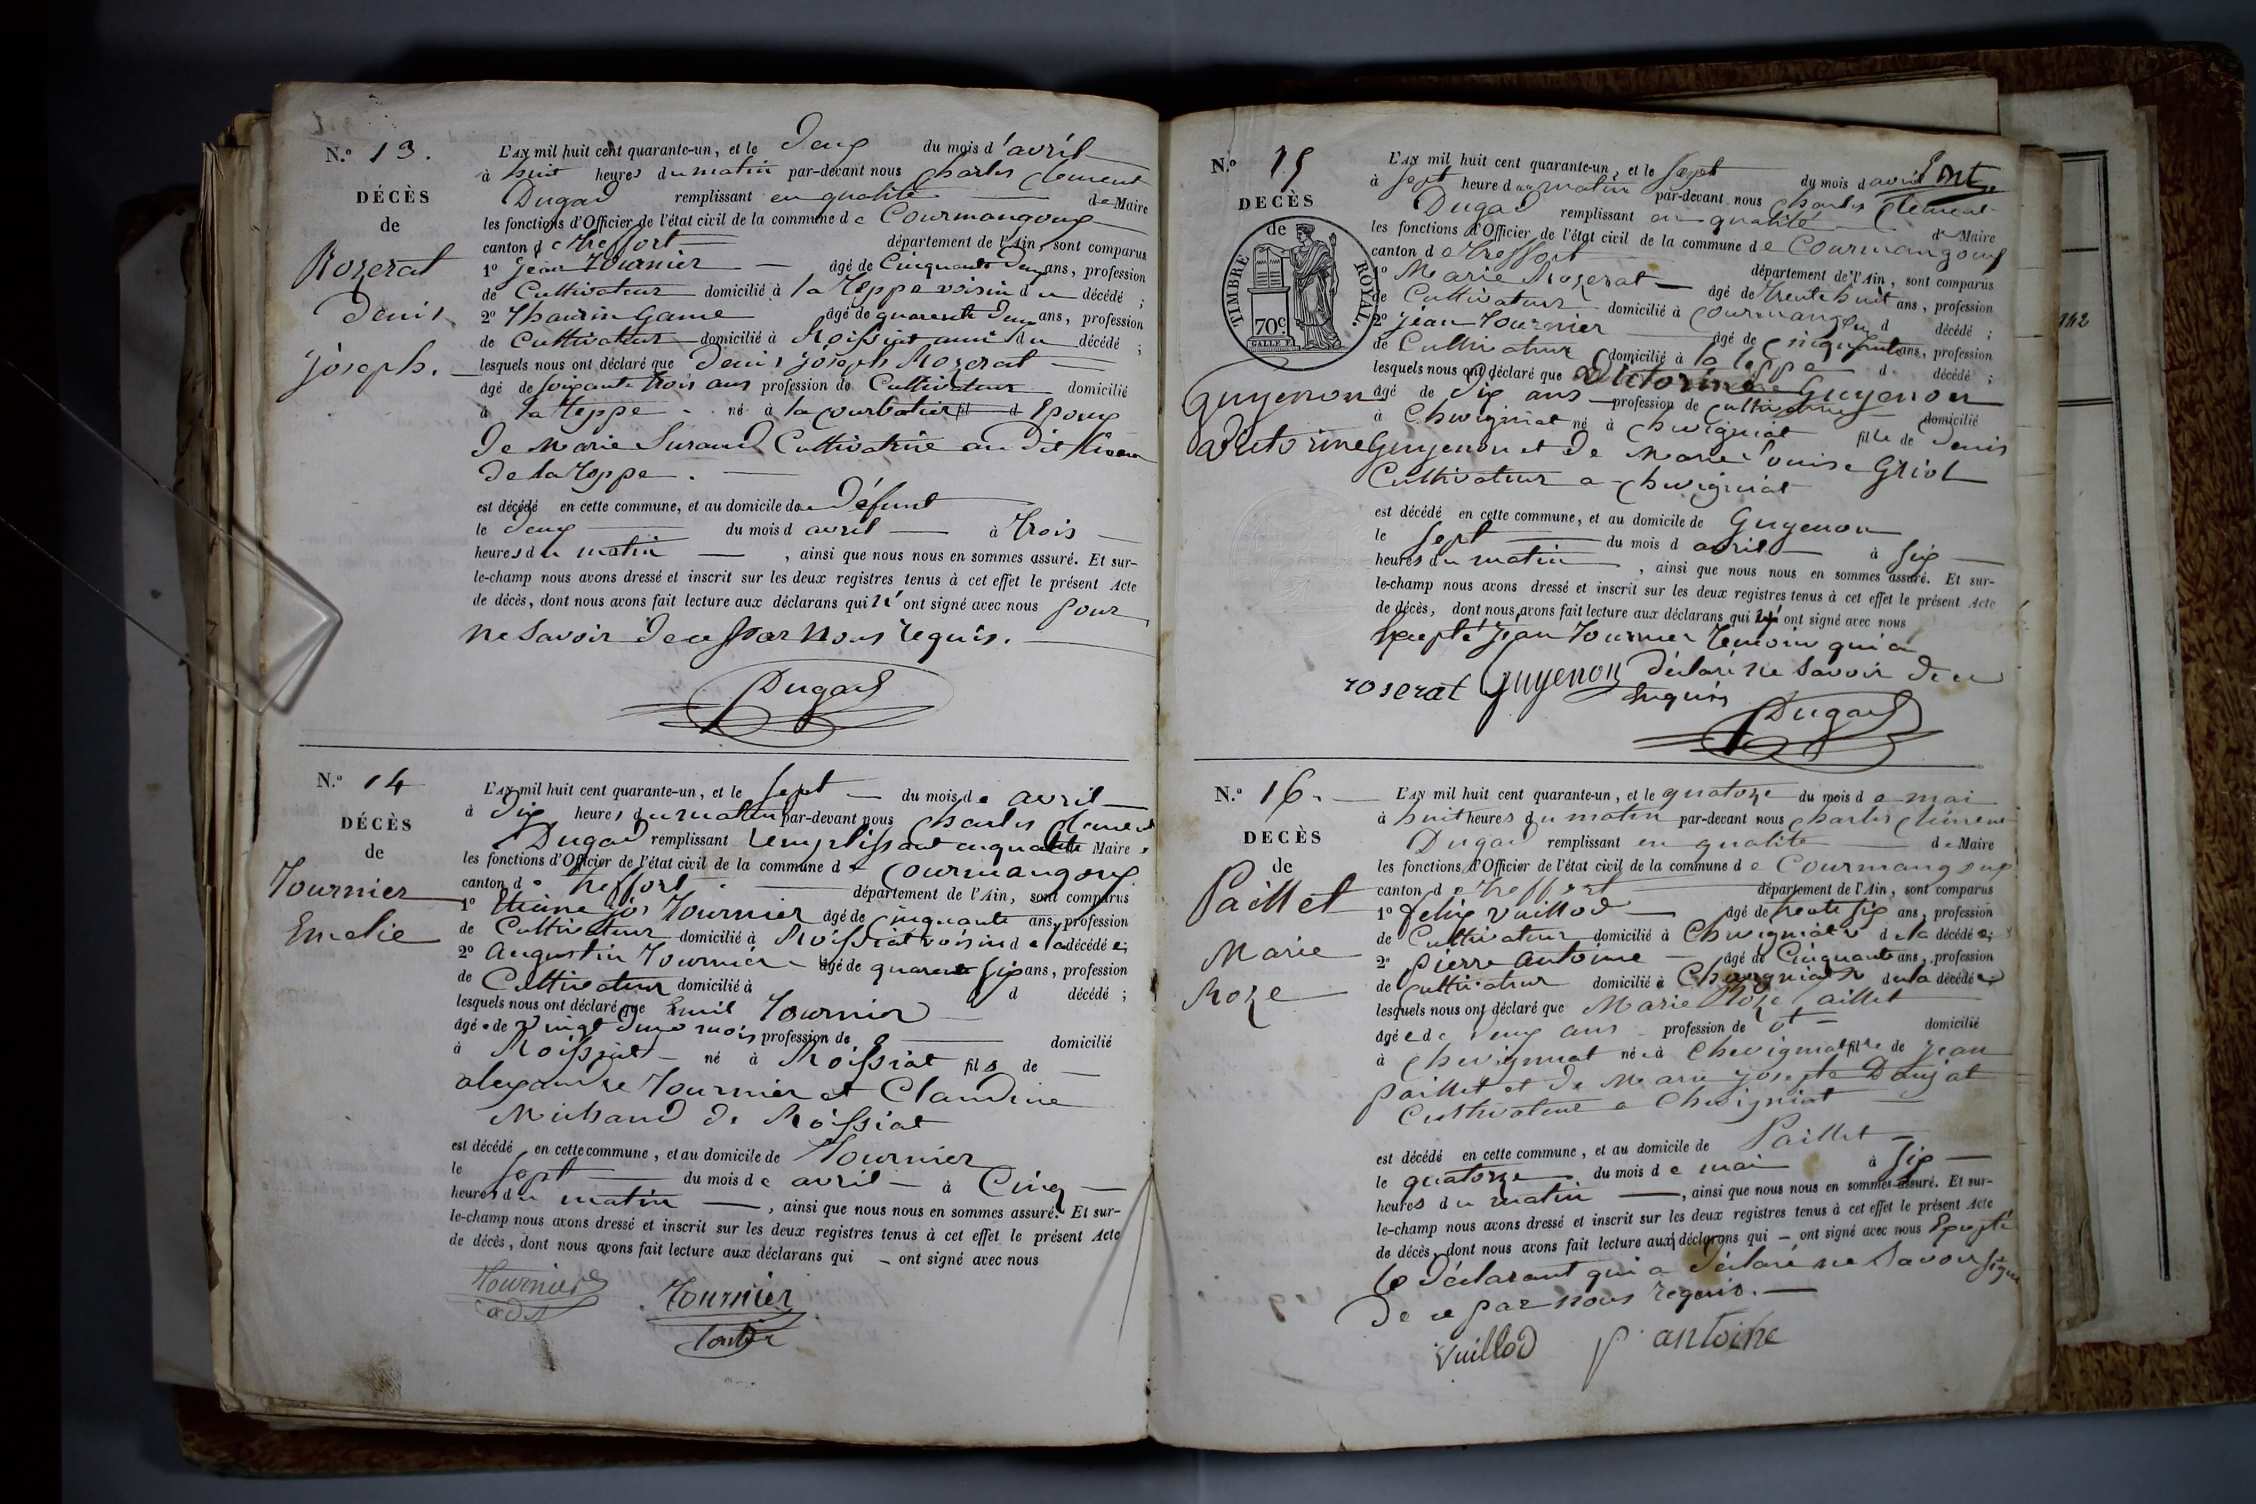 N.º 13.
DÉCÈS
de
Rozerat
Denis
Joseph.
L'AN mil huit cent quarante-un, et le Deux du mois d'avril
à huit heures du matin par-devant nous Charles Clement
Dugad remplissant en qualité de Maire
les fonctions d'Officier de l'état civil de la commune de Courmangoux
canton de treffort département de l'Ain, sont comparus
1º Jean Tournier âgé de Cinquante Deux ans, profession
de Cultivateur domicilié à la teppe voisin du décédé ;
2º Thaurin Game âgé de quarente Deux ans, profession
de Cultivateur domicilié à Roissiat ami du décédé ;
lesquels nous ont déclaré que Denis joseph Rozerat
âgé de soixante trois ans profession de Cultivateur domicilié
à la teppe né à la Courbatier fil d Epoux
De Marie Suraud Cultivatrice au Dit lieu
De la teppe.
est décédé en cette commune, et au domicile du Défunt
le Deux du mois d avril à trois
heures du matin , ainsi que nous nous en sommes assuré. Et sur-
le-champ nous avons dressé et inscrit sur les deux registres tenus à cet effet le présent Acte
de décès, dont nous avons fait lecture aux déclarans qui n'ont signé avec nous pour
ne savoir de ce par nous requis.
Dugad
N.º 14
DÉCÈS
de
Tournier
Emelie
L'AN mil huit cent quarante-un, et le sept du mois de avril
à Dix heures du matin par-devant nous Charles Clement
Dugad remplissant remplissant en qualité de Maire
les fonctions d'Officier de l'état civil de la commune de Courmangoux
canton de treffort département de l'Ain, sont comparus
1º Etiene jos Tournier âgé de Cinquante ans, profession
de Cultivateur domicilié à Roissiat voisin de la décédée ;
2º Augustin Tournier âgé de quarente six ans, profession
de Cultivateur domicilié à d décédé ;
lesquels nous ont déclaré que Emil Tournier
âgée de vingt Deux mois profession de domicilié
à Roissiat né à Roissiat fils de
alexandre Tournier et Claudine
Michaud de Roissiat
est décédé en cette commune, et au domicile de Tournier
le sept du mois de avril à Cinq
heures du matin , ainsi que nous nous en sommes assuré. Et sur-
le-champ nous avons dressé et inscrit sur les deux registres tenus à cet effet le présent Acte
de décès, dont nous avons fait lecture aux déclarans qui ont signé avec nous
Tournier
Tournier
N.º 15
DECÈS
de
TIMBRE ROYAL.
70c.
Guyenon
Victorine
L'AN mil huit cent quarante-un, et le sept du mois d avril
à sept heure du matin par-devant nous Charles Clement
Dugad remplissant en qualité de Maire
les fonctions d'Officier de l'état civil de la commune de Courmangoux
canton de treffort département de l'Ain, sont comparus
1º Marie Rozerat âgé de trente huit ans, profession
de Cultivateur domicilié à Courmangoux d décédé ;
2º jean Tournier âgé de Cinquante ans, profession
de Cultivateur domicilié à la teppe d décédé ;
lesquels nous ont déclaré que Victorine Guyenon
âgé de Dix ans profession de Cultivatrice domicilié
à Chevigniat né à Chevigniat fille de Denis
Guyenon et de Marie Louise Griot
Cultivateur a Chevigniat
est décédé en cette commune, et au domicile de Guyenon
le sept du mois d avril à six
heures du matin , ainsi que nous nous en sommes assuré. Et sur-
le-champ nous avons dressé et inscrit sur les deux registres tenus à cet effet le présent Acte
de décès, dont nous avons fait lecture aux déclarans qui ont signé avec nous
Excepté Jean Tournier temoin qui a
déclaré ne savoir de ce
requis
roserat Guyenon
Dugad
N.º 16.
DECÈS
de
Paillet
Marie
Roze
L'AN mil huit cent quarante-un, et le quatorze du mois de mai
à huit heures du matin par-devant nous Charles Clément
Dugad remplissant en qualité de Maire
les fonctions d'Officier de l'état civil de la commune de Courmangoux
canton de treffort département de l'Ain, sont comparus
1º felix Vuillod âgé de trente six ans, profession
de Cultivateur domicilié à Chevigniat v de la décédée ;
2º pierre antoine âgé de Cinquante ans, profession
de Cultivateur domicilié à Chevigniat v de la décédée ;
lesquels nous ont déclaré que Marie Roze Paillet
âgée de Deux ans profession de domicilié
à Chevigniat née à Chevigniat fille de Jean
paillet et de Marie josephe Doujat
Cultivateur a Chevigniat
est décédé en cette commune, et au domicile de Paillet
le quatorze du mois de mai à six
heures du matin , ainsi que nous nous en sommes assuré. Et sur-
le-champ nous avons dressé et inscrit sur les deux registres tenus à cet effet le présent Acte
de décès, dont nous avons fait lecture aux déclarans qui ont signé avec nous Excepté
le Déclarant qui a déclaré ne savoir signer
de ce par nous requis.
Vuillod P antoine